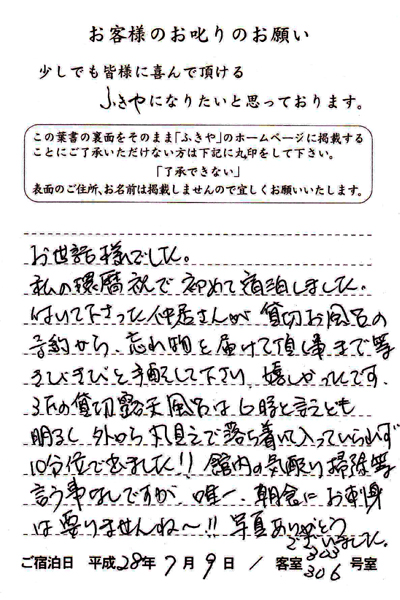 お客様のお叱りのお願い
少しでも皆様に喜んで頂ける
ふきやになりたいと思っております。
この葉書の裏面をそのまま「ふきや」のホームページに掲載する
ことにご了承いただけない方は下記に丸印をして下さい。
「了承できない」
表面のご住所、お名前は掲載しませんので宜しくお願いいたします。
お世話様でした。
私の還暦祝で初めて宿泊しました。
はいて下さった仲居さんが貸切お風呂の
予約から、忘れ物を届けて頂く事まで等
きびきびと手配して下さい、嬉しかったです。
3Fの貸切露天風呂は6時と言えども
明るく外から丸見えで落ち着いて入っていられず
10分位で出ました!!館内の気配り掃除等
言う事なしですが、唯一、朝食にお刺身
は要りませんね〜!!写真ありがとう
ございました。
303
ご宿泊日 平成28年7月9日 / 客室306号室